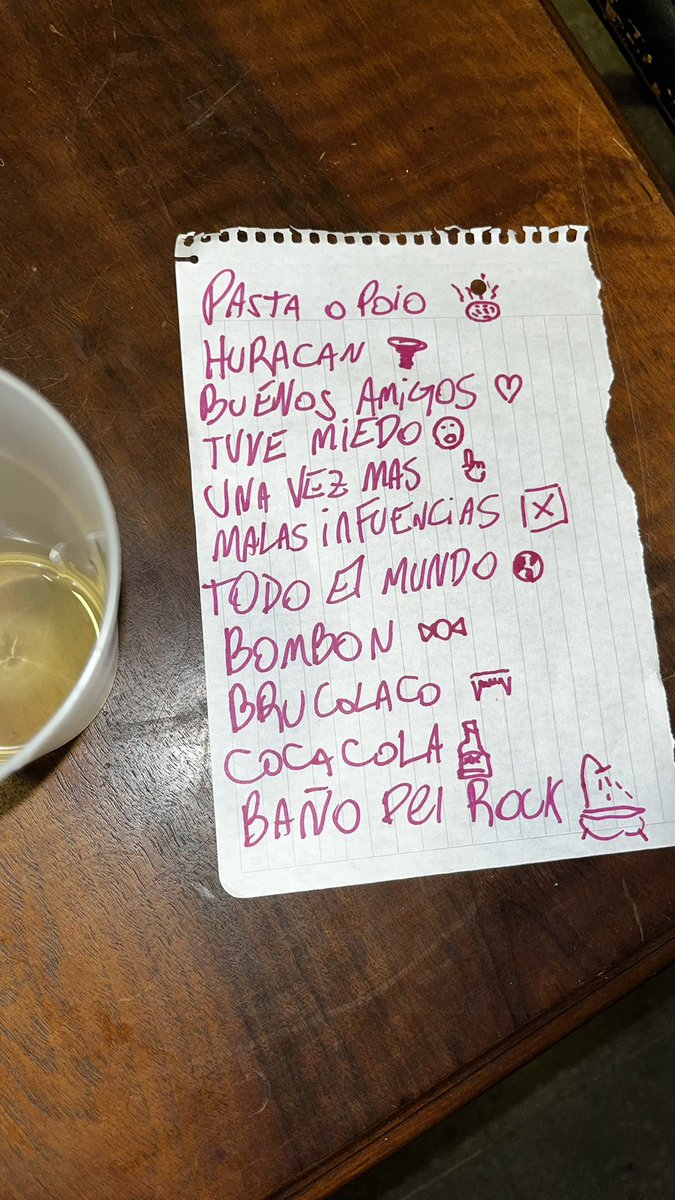 PASTA O POIO
HURACAN
BUENOS AMIGOS
TUVE MIEDO
UNA VEZ MAS
MALAS INFUENCIAS
TODO El MUNDO
BOMBON
BRUCOLACO
COCA COLA
BAÑO DEl ROCK